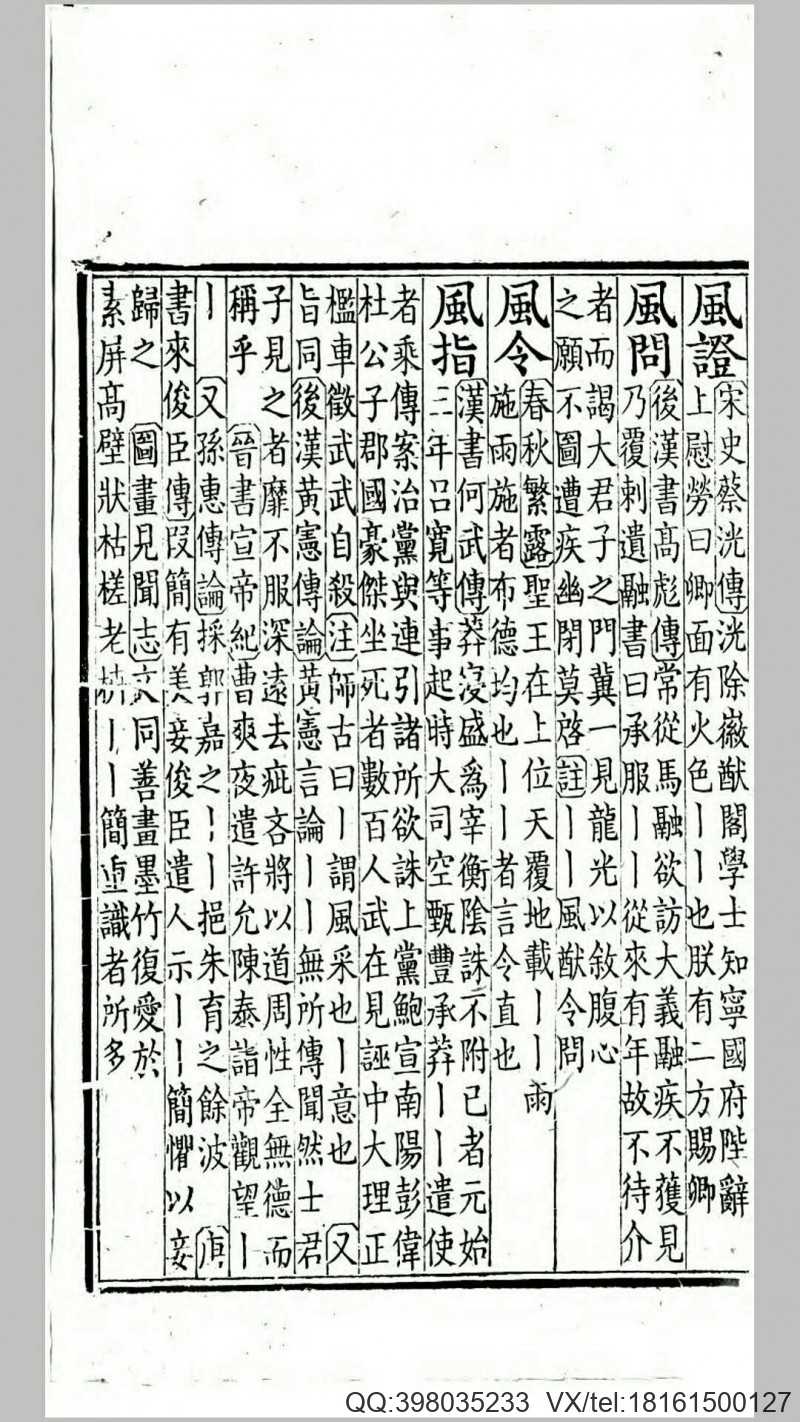 風證 宋史蔡洸傳洸除徽猷閣學士知寧國府陛辭
上慰勞曰卿面有火色丨丨也朕有二方賜卿
風問 後漢書高彪傳常從馬融欲訪大義融疾不獲見
乃覆刺遺融書曰承服丨丨從來有年故不待介
者而謁大君子之門冀一見龍光以敘腹心
之願不圖遭疾幽閉莫啓註丨丨風猷令問
風令 春秋繁露聖王在上位天覆地載丨丨雨
施雨施者布德均也丨丨者言令直也
風指 漢書何武傳莽寖盛爲宰衡陰誅不附已者元始
三年呂寬等事起時大司空甄豐承莽丨丨遣使
者乘傳案治黨與連引諸所欲誅上黨鮑宣南陽彭偉
杜公子郡國豪傑坐死者數百人武在見誣中大理正
檻車徵武武自殺注師古曰丨謂風采也丨意也又
旨同後漢黃憲傳論黃憲言論丨丨無所傳聞然士君
子見之者靡不服深遠去疵吝將以道周性全無德而
稱乎 晉書宣帝紀曹爽夜遣許允陳泰詣帝觀望丨
丨 又孫惠傳論採郭嘉之丨丨挹朱育之餘波 唐
書來俊臣傳段簡有美妾俊臣遣人示丨丨簡懼以妾
歸之 圖畫見聞志文同善畫墨竹復愛於
素屏高壁狀枯槎老枿丨丨簡重識者所多
QQ:398035233 VX/tel:18161500127